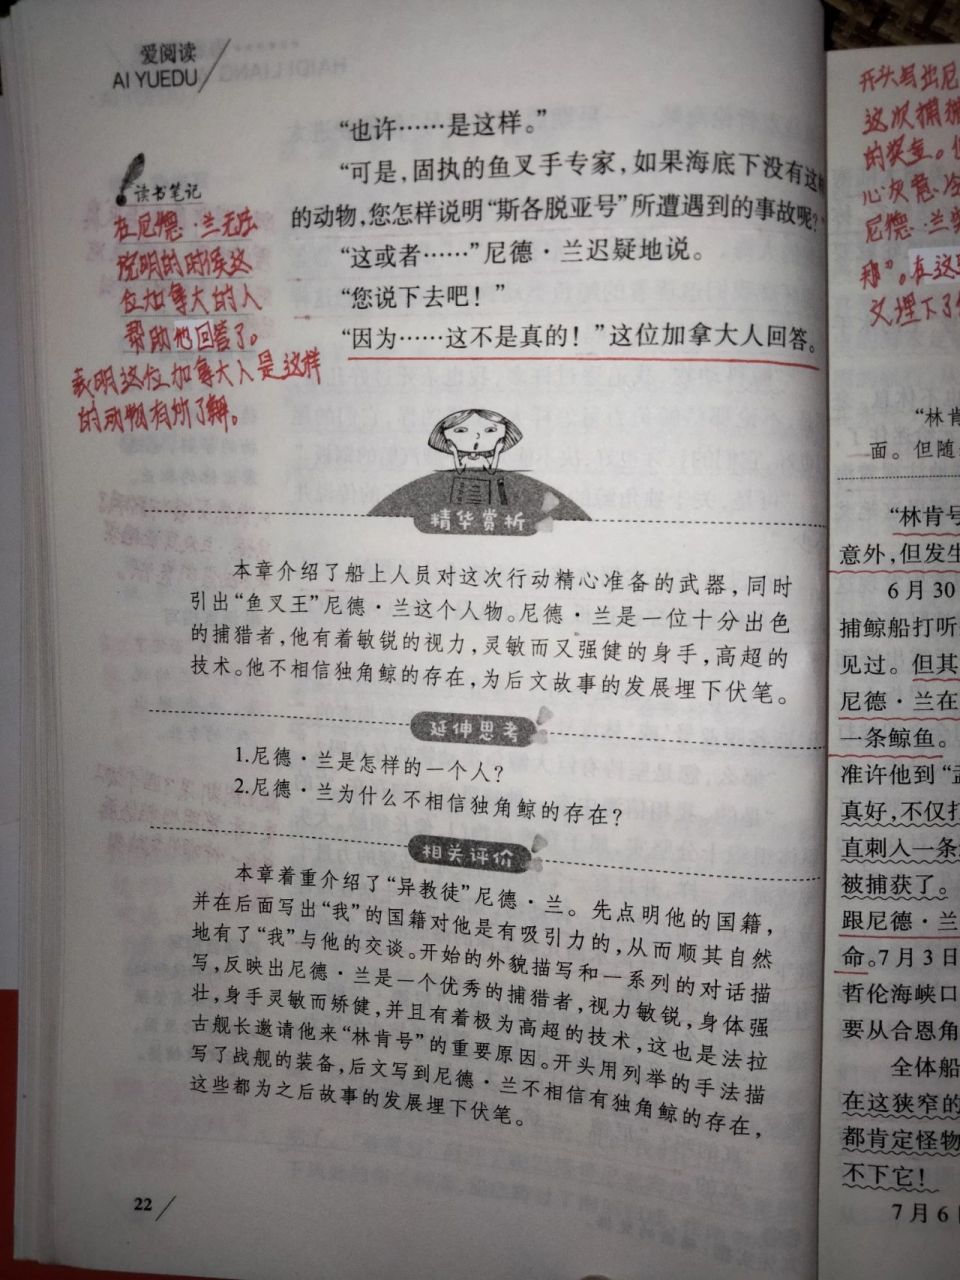 爱阅读
AI YUEDU
“也许……是这样。”
“可是，固执的鱼叉手专家，如果海底下没有这
的动物，您怎样说明“斯各脱亚号”所遭遇到的事故呢？
“这或者……”尼德·兰迟疑地说。
“您说下去吧！”
“因为……这不是真的！”这位加拿大人回答。
读书笔记
在尼德·兰无法
说明的时侯这
位加拿大的人
帮助他回答了。
表明这位加拿大人是这样
的动物有所了解。
精华赏析
本章介绍了船上人员对这次行动精心准备的武器，同时
引出“鱼叉王”尼德·兰这个人物。尼德·兰是一位十分出色
的捕猎者，他有着敏锐的视力，灵敏而又强健的身手，高超的
技术。他不相信独角鲸的存在，为后文故事的发展埋下伏笔。
延伸思考
1.尼德·兰是怎样的一个人？
2.尼德·兰为什么不相信独角鲸的存在？
相关评价
本章着重介绍了“异教徒”尼德·兰。先点明他的国籍，
并在后面写出“我”的国籍对他是有吸引力的，从而顺其自然
地有了“我”与他的交谈。开始的外貌描写和一系列的对话描
写，反映出尼德·兰是一个优秀的捕猎者，视力敏锐，身体强
壮，身手灵敏而矫健，并且有着极为高超的技术，这也是法拉
古舰长邀请他来“林肯号”的重要原因。开头用列举的手法描
写了战舰的装备，后文写到尼德·兰不相信有独角鲸的存在，
这些都为之后故事的发展埋下伏笔。
22
开头写出尼
这次捕
的奖金。
心灰意冷
尼德·兰
那”。在这里
又埋下了
“林肯
面。但随
“林肯号
意外，但发生
6月30
捕鲸船打听
见过。但其
尼德·兰在
一条鲸鱼。
准许他到“
真好，不仅打
直刺入一条
被捕获了。
跟尼德·兰
命。7月3日
哲伦海峡口
要从合恩角
全体船
在这狭窄的
都肯定怪物
不下它！
7月6